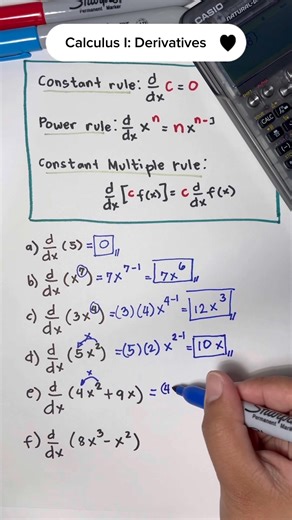 Sharpie
Permanent Marker
CASIO
Calculus I: Derivatives 🖤
Constant rule: d/dx c = 0
Power rule: d/dx x^n = n x^(n-1)
Constant Multiple rule:
d/dx [c f(x)] = c d/dx f(x)
a) d/dx (5) = 0
b) d/dx (x^7) = 7x^(7-1) = 7x^6
c) d/dx (3x^4) = (3)(4)x^(4-1) = 12x^3
x
d) d/dx (5x^2) = (5)(2)x^(2-1) = 10x
x
e) d/dx (4x^2 + 9x) = (4
f) d/dx (8x^3 - x^2)
Sharpie